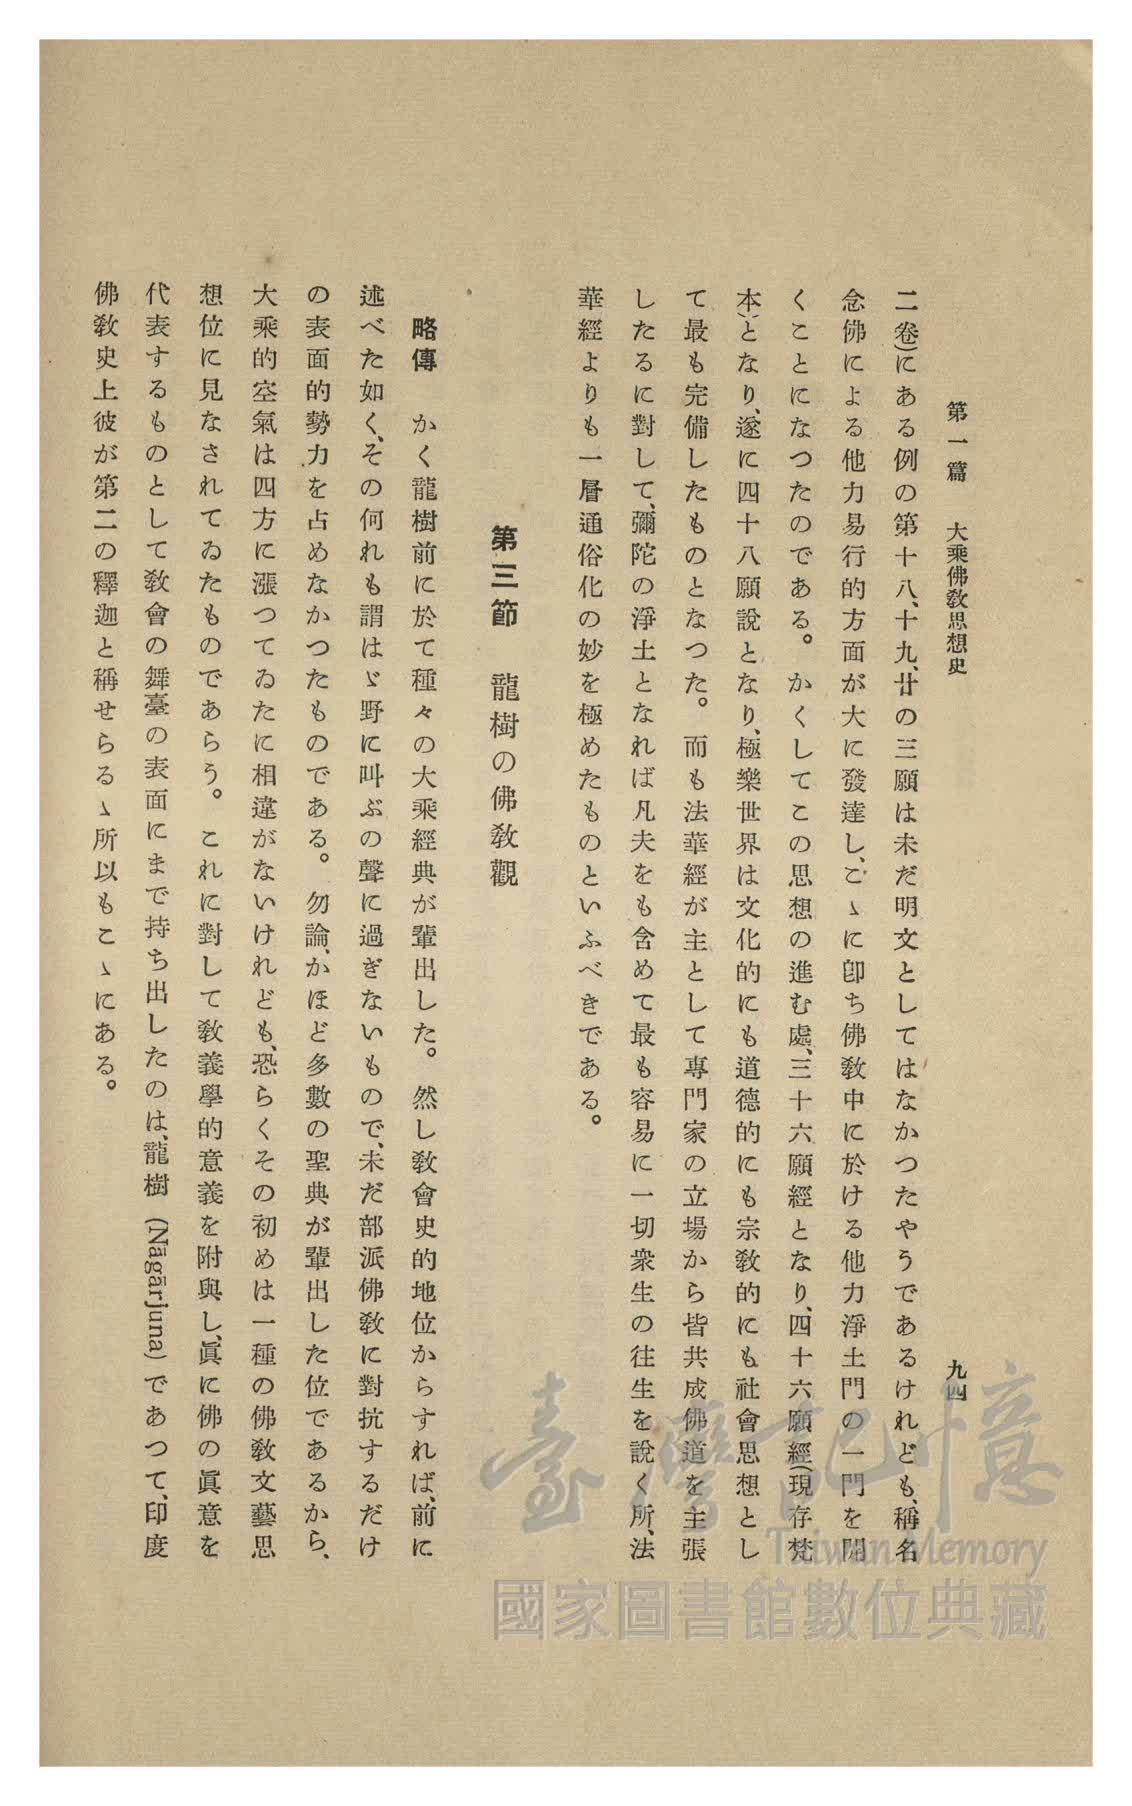 第一篇　大乘佛敎思想史　九四
二卷)にある例の第十八、十九、廿の三願は未だ明文としてはなかつたやうであるけれども、稱名
念佛による他力易行的方面が大に發達し、こゝに卽ち佛敎中に於ける他力淨土門の一門を開
くことになつたのである。かくしてこの思想の進む處、三十六願經となり、四十六願經(現存梵
本)となり、遂に四十八願說となり、極樂世界は文化的にも道德的にも宗敎的にも社會思想とし
て最も完備したものとなつた。而も法華經が主として專門家の立場から皆共成佛道を主張
したるに對して、彌陀の淨土となれば凡夫をも含めて最も容易に一切衆生の往生を說く所、法
華經よりも一層通俗化の妙を極めたものといふべきである。
第三節　龍樹の佛敎觀
略傳　かく龍樹前に於て種々の大乘經典が輩出した。然し敎會史的地位からすれば、前に
述べた如く、その何れも謂はゞ野に叫ぶの聲に過ぎないもので、未だ部派佛敎に對抗するだけ
の表面的勢力を占めなかつたものである。勿論、かほど多數の聖典が輩出した位であるから、
大乘的空氣は四方に漲つてゐたに相違がないけれども、恐らくその初めは一種の佛敎文藝思
想位に見なされてゐたものであらう。これに對して敎義學的意義を附與し、眞に佛の眞意を
代表するものとして敎會の舞臺の表面にまで持ち出したのは、龍樹 (Nāgārjuna) であつて、印度
佛敎史上彼が第二の釋迦と稱せらるゝ所以もこゝにある。
臺灣記憶
Taiwan Memory
國家圖書館數位典藏